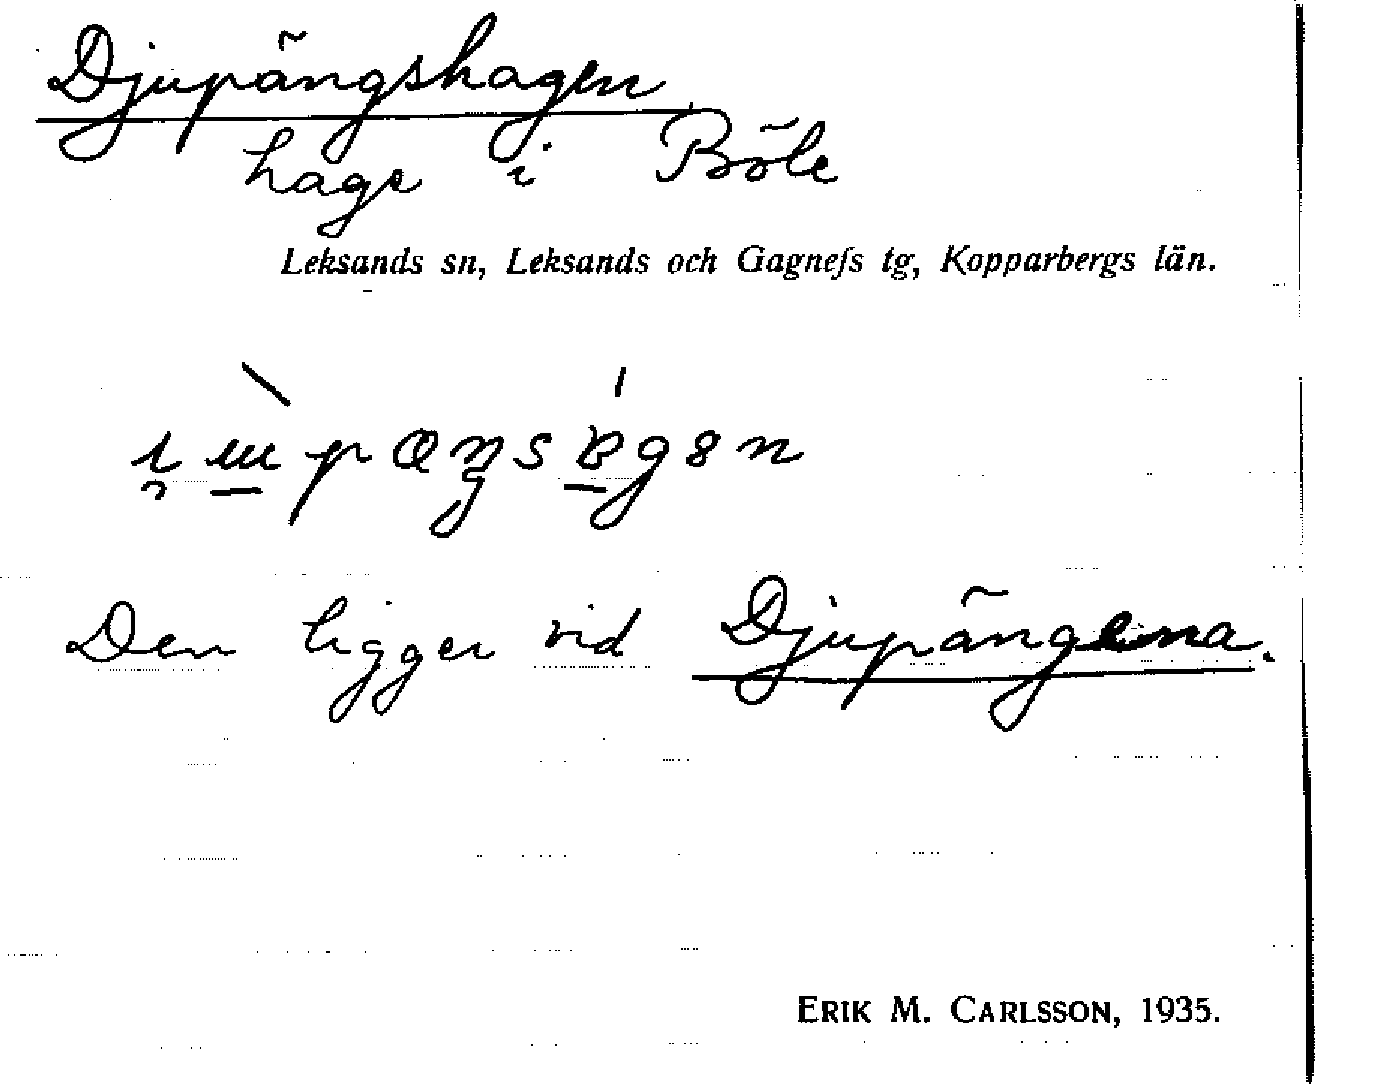 Djupängshagen
hage i Böle
Leksands sn, Leksands och Gagnefs tg, Kopparbergs län.
Den ligger vid Djupängena.
ERIK M. CARLSSON, 1935.